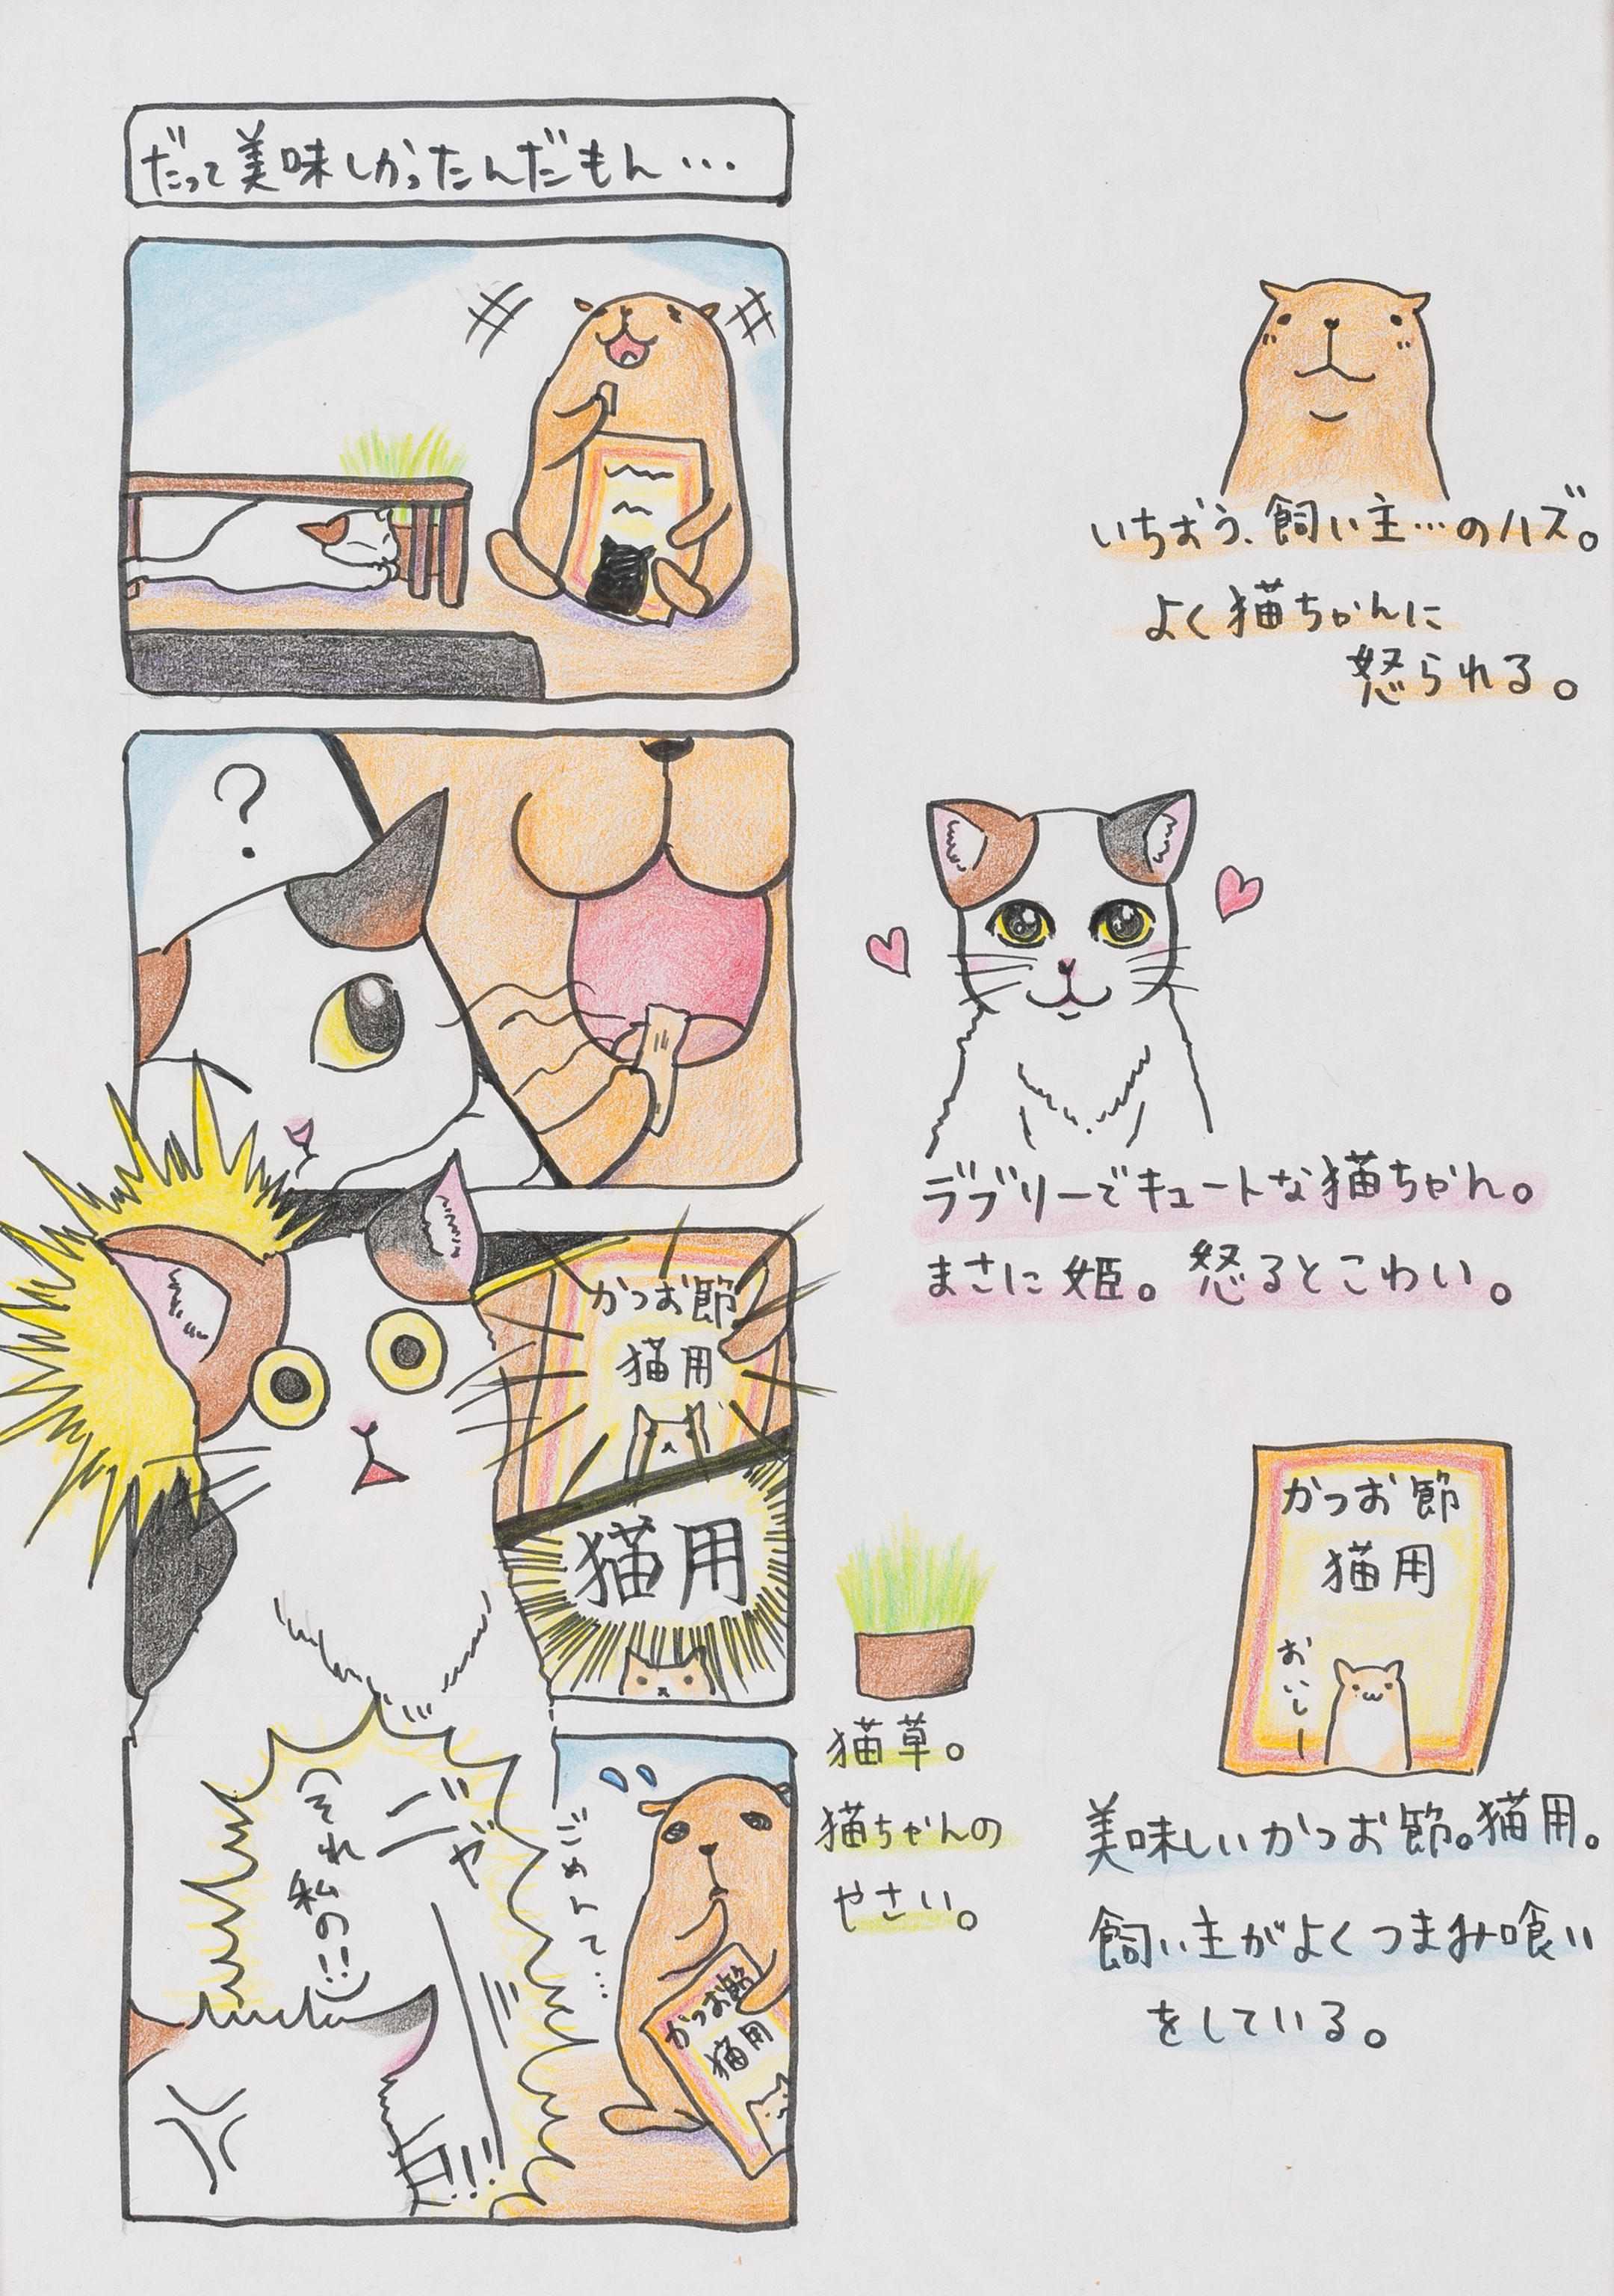 だって美味しかったんだもん…
?
かつお節
猫用
猫用
ニ゛ャ
(それ
私の!!)
ごめんて…
かつお節
猫用
いちおう、飼い主…のハズ。
よく猫ちゃんに
怒られる。
ラブリーでキュートな猫ちゃん。
まさに姫。怒るとこわい。
猫草。
猫ちゃんの
やさい。
かつお節
猫用
おいしー
美味しいかつお節。猫用。
飼い主がよくつまみ喰い
をしている。